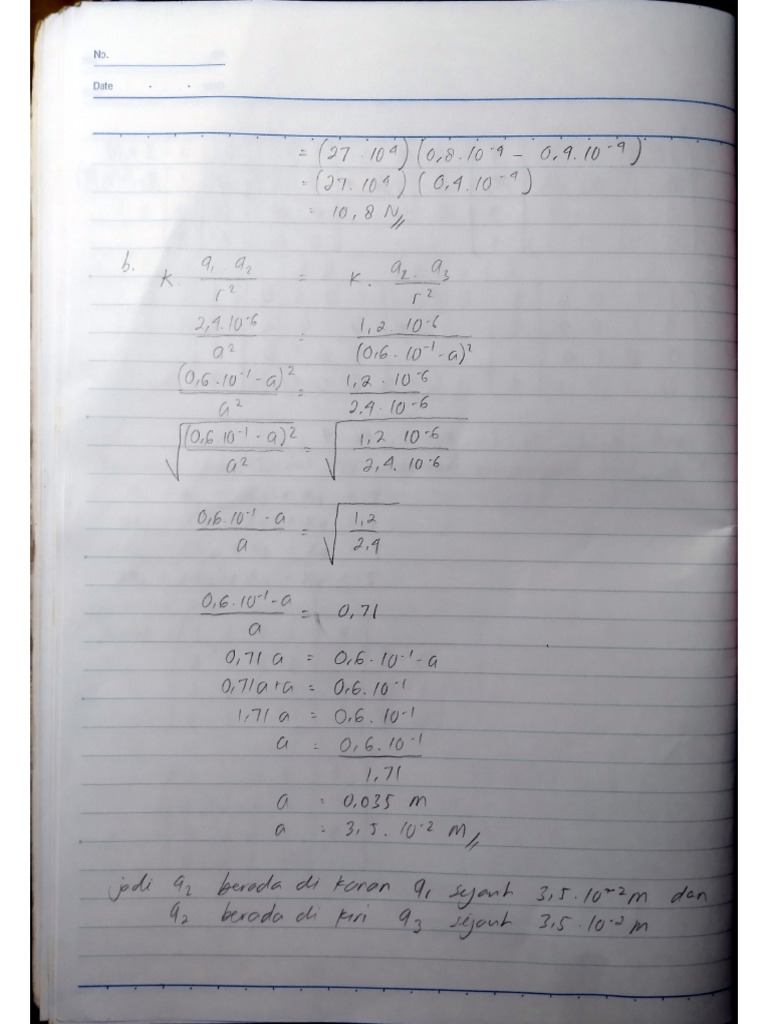 No.
Date
= (27 · 10⁴) (0,8.10⁻⁴ - 0,4.10⁻⁴)
= (27. 10⁴) (0,4.10⁻⁴)
= 10,8 N //
b. k. q₁ . q₂ / r² = k . q₂ . q₃ / r²
2,4.10⁻⁶ / a² = 1,2. 10⁻⁶ / (0,6. 10⁻¹ - a)²
(0,6.10⁻¹ - a)² / a² = 1,2 . 10⁻⁶ / 2.4 . 10⁻⁶
√((0,6 10⁻¹ - a)² / a²) = √(1,2 10⁻⁶ / 2,4. 10⁻⁶)
0,6.10⁻¹ - a / a = √(1,2 / 2,4)
0,6.10⁻¹ - a / a = 0,71
0,71 a = 0,6.10⁻¹ - a
0,71a + a = 0,6.10⁻¹
1,71 a = 0,6. 10⁻¹
a = 0,6.10⁻¹ / 1,71
a = 0,035 m
a = 3,5.10⁻² m //
jadi q₂ berada di kanan q₁ sejauh 3,5.10⁻² m dan
q₂ berada di kiri q₃ sejauh 3,5.10⁻² m